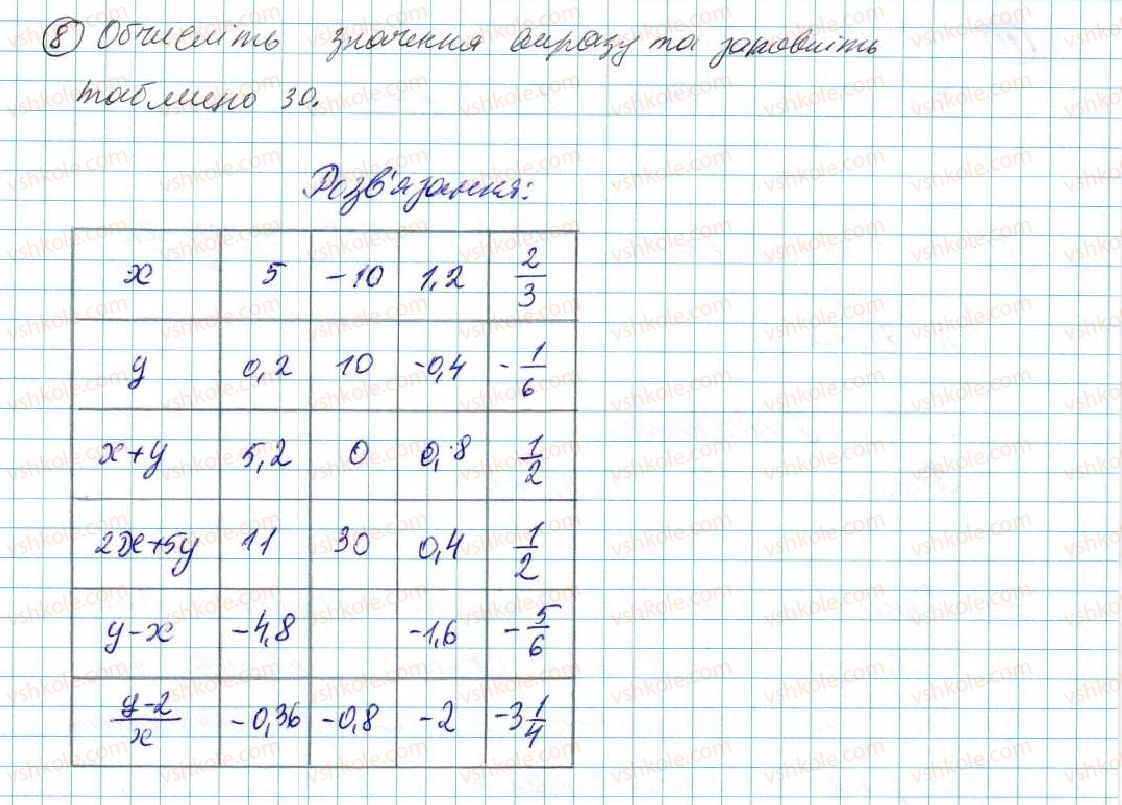 8 Обчисліть значення виразу та заповніть
таблицю 30.
Розв'язання:
x 5 -10 1,2 2/3
y 0,2 10 -0,4 -1/6
x+y 5,2 0 0,8 1/2
2x+5y 11 30 0,4 1/2
y-x -4,8 -1,6 -5/6
y-2/x -0,36 -0,8 -2 -3 1/4